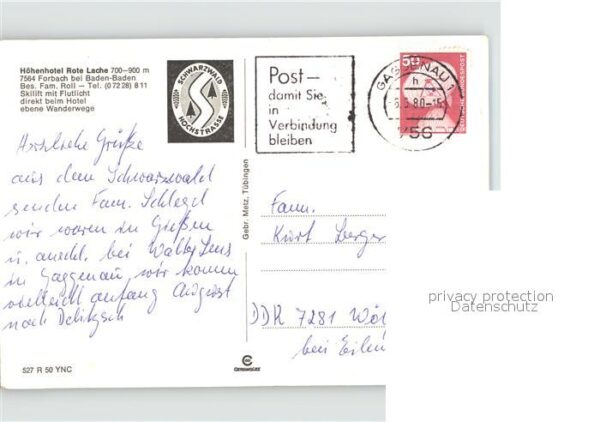 Höhenhotel Rote Lache 700–900 m
7564 Forbach bei Baden-Baden
Bes. Fam. Roll – Tel. (0 72 28) 8 11
Skilift mit Flutlicht
direkt beim Hotel
ebene Wanderwege
SCHWARZWALD
HOCHSTRASSE
Post–
damit Sie
in
Verbindung
bleiben
GAGGENAU 1
h
80-15
756
50
DEUTSCHE BUNDESPOST
Herzliche Grüße
aus dem Schwarzwald
senden Fam. Schlegel
wir waren in
u. anschl. bei
in Gaggenau, wir kommen
vielleicht anfang August
nach Delitzsch
Gebr. Metz, Tübingen
Fam.
Kurt Berger
DDR 7281
bei Eilen
privacy protection
Datenschutz
527 R 50 YNC